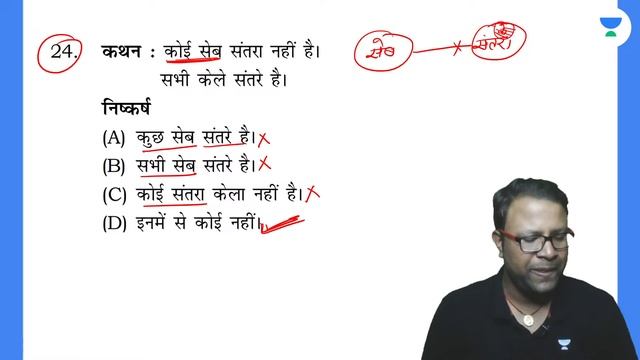 24. कथन : कोई सेब संतरा नहीं है।
सभी केले संतरे है।
निष्कर्ष
(A) कुछ सेब संतरे है।
(B) सभी सेब संतरे है।
(C) कोई संतरा केला नहीं है।
(D) इनमें से कोई नहीं।
सेब संतरा